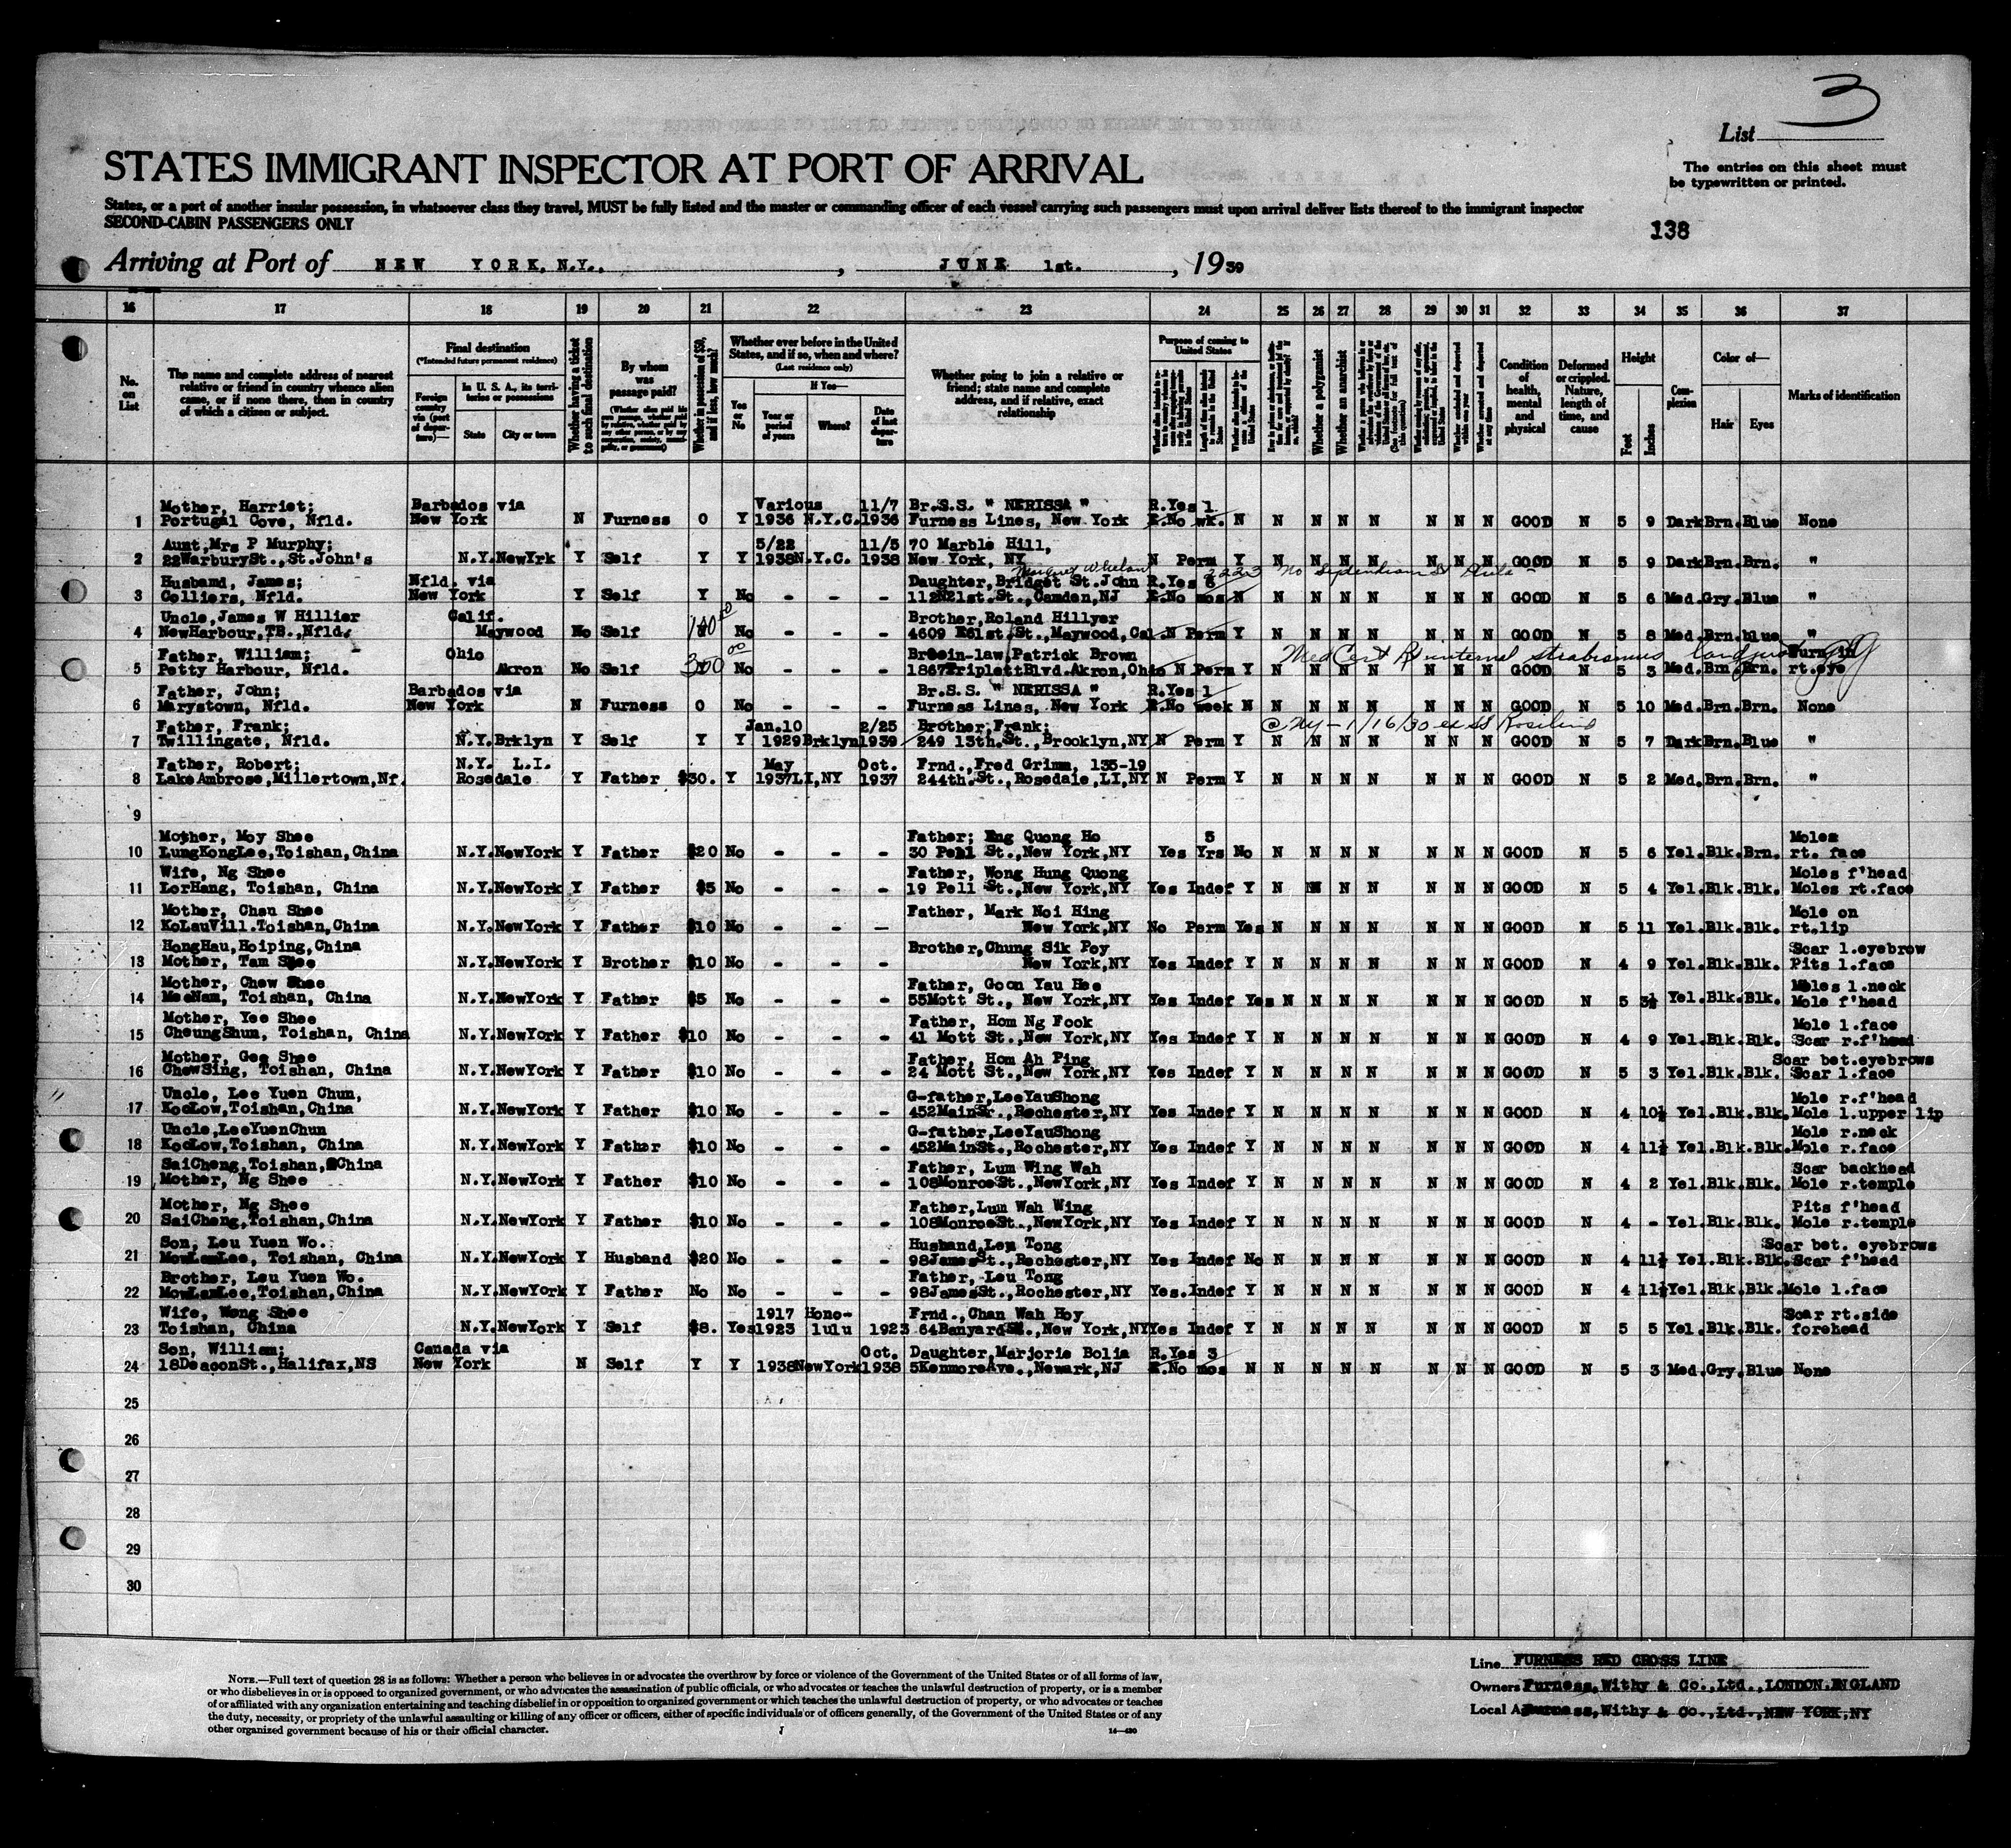 3
List
STATES IMMIGRANT INSPECTOR AT PORT OF ARRIVAL
The entries on this sheet must
be typewritten or printed.
States, or a port of another insular possession, in whatsoever class they travel, MUST be fully listed and the master or commanding officer of each vessel carrying such passengers must upon arrival deliver lists thereof to the immigrant inspector
SECOND-CABIN PASSENGERS ONLY
138
Arriving at Port of NEW YORK, N.Y., , JUNE 1st. , 1939
16 17 18 19 20 21 22 23 24 25 26 27 28 29 30 31 32 33 34 35 36 37
No. on List
The name and complete address of nearest relative or friend in country whence alien came, or if none there, then in country of which a citizen or subject.
Final destination
(*Intended future permanent residence)
Foreign country via (port of departure)—
In U. S. A., its territories or possessions
State City or town
Whether having a ticket to such final destination
By whom was passage paid?
Whether in possession of $50, and if less, how much?
Whether ever before in the United States, and if so, when and where?
(Last residence only)
Yes or No
If Yes—
Year or period of years Where? Date of last departure
Whether going to join a relative or friend; state name and complete address, and if relative, exact relationship
Purpose of coming to United States
Whether a polygamist
Whether an anarchist
Condition of health, mental and physical
Deformed or crippled. Nature, length of time, and cause
Height
Feet Inches
Complexion
Color of—
Hair Eyes
Marks of identification
Mother, Harriet; Barbados via Various 11/7 Br.S.S. " NERISSA " R.Yes 1
1 Portugal Cove, Nfld. New York N Furness 0 Y 1936 N.Y.C. 1936 Furness Lines, New York R.No wk. N N N N N N N N GOOD N 5 9 Dark Brn. Blue None
Aunt, Mrs P Murphy; 5/22 11/5 70 Marble Hill,
2 22WarburySt., St.John's N.Y. NewYrk Y Self Y Y 1938 N.Y.C. 1938 New York, NY N Perm Y N N N N N N N GOOD N 5 9 Dark Brn. Brn. "
Husband, James; Nfld. via Daughter, Bridget St.John R.Yes 6
3 Colliers, Nfld. New York Y Self Y No - - - 112N21st.St., Camden, NJ R.No mos N N N N N N N N GOOD N 5 6 Med. Gry. Blue "
Uncle, James W Hillier Calif. Brother, Roland Hillyer
4 NewHarbour, TB., Nfld. Maywood No Self 100 No - - - 4609 E61st.St., Maywood, Cal N Perm Y N N N N N N N GOOD N 5 8 Med. Brn. blue "
Father, William; Ohio Broein-law, Patrick Brown Med Cert internal strabismus Turn in
5 Petty Harbour, Nfld. Akron No Self 300 No - - - 1867TriplettBlvd. Akron, Ohio N Perm Y N N N N N N N GOOD N 5 3 Med. Brn Brn. rt.eye
Father, John; Barbados via Br.S.S. " NERISSA " R.Yes 1
6 Marystown, Nfld. New York N Furness 0 No - - - Furness Lines, New York R.No week N N N N N N N N GOOD N 5 10 Med. Brn. Brn. None
Father, Frank; Jan.10 2/25 Brother, Frank; NY - 1/16/30
7 Twillingate, Nfld. N.Y. Brklyn Y Self Y Y 1929 Brklyn 1939 249 13th.St., Brooklyn, NY N Perm Y N N N N N N N GOOD N 5 7 Dark Brn. Blue "
Father, Robert; N.Y. L.I. May Oct. Frnd., Fred Grimm, 135-19
8 LakeAmbrose, Millertown, Nf. Rosedale Y Father $30. Y 1937 LI, NY 1937 244th.St., Rosedale, LI, NY N Perm Y N N N N N N N GOOD N 5 2 Med. Brn. Brn. "
9
Mother, Moy Shee Father; Eng Quong Ho 5 Moles
10 LungKongLee, Toishan, China N.Y. NewYork Y Father $20 No - - - 30 Pell St., New York, NY Yes Yrs No N N N N N N N GOOD N 5 6 Yel. Blk. Brn. rt. face
Wife, Ng Shee Father, Wong Hung Quong Moles f'head
11 LorHang, Toishan, China N.Y. NewYork Y Father $5 No - - - 19 Pell St., New York, NY Yes Indef Y N N N N N N N GOOD N 5 4 Yel. Blk. Blk. Moles rt.face
Mother, Chau Shee Father, Mark Noi Hing Mole on
12 KoLauVill. Toishan, China N.Y. NewYork Y Father $10 No - - - New York, NY No Perm Yes N N N N N N N GOOD N 5 11 Yel. Blk. Blk. rt.lip
HongHau, Hoiping, China Brother, Chung Sik Poy Scar l.eyebrow
13 Mother, Tam Shee N.Y. NewYork Y Brother $10 No - - - New York, NY Yes Indef Y N N N N N N N GOOD N 4 9 Yel. Blk. Blk. Pits l.face
Mother, Chew Shee Father, Goon Yau Hee Moles l.neck
14 MeeNam, Toishan, China N.Y. NewYork Y Father $5 No - - - 55Mott St., New York, NY Yes Indef Yes N N N N N N N GOOD N 5 3½ Yel. Blk. Blk. Mole f'head
Mother, Yee Shee Father, Hom Ng Fook Mole l.face
15 CheungShun, Toishan, China N.Y. NewYork Y Father $10 No - - - 41 Mott St., New York, NY Yes Indef Y N N N N N N N GOOD N 4 9 Yel. Blk. Blk. Scar r.f'head
Mother, Gee Shee Father, Hom Ah Ping Scar bet.eyebrows
16 ChewSing, Toishan, China N.Y. NewYork Y Father $10 No - - - 24 Mott St., New York, NY Yes Indef Y N N N N N N N GOOD N 5 3 Yel. Blk. Blk. Scar l.face
Uncle, Lee Yuen Chun, G-father, LeeYauShong Mole r.f'head
17 KocLow, Toishan, China N.Y. NewYork Y Father $10 No - - - 452MainSr., Rochester, NY Yes Indef Y N N N N N N N GOOD N 4 10½ Yel. Blk. Blk. Mole l.upper lip
Uncle, LeeYuenChun G-father, LeeYauShong Mole r.neck
18 KocLow, Toishan, China N.Y. NewYork Y Father $10 No - - - 452MainSt., Rochester, NY Yes Indef Y N N N N N N N GOOD N 4 11½ Yel. Blk. Blk. Mole r.face
SaiCheng, Toishan, China Father, Lum Wing Wah Scar backhead
19 Mother, Ng Shee N.Y. NewYork Y Father $10 No - - - 108MonroeSt., NewYork, NY Yes Indef Y N N N N N N N GOOD N 4 2 Yel. Blk. Blk. Mole r.temple
Mother, Ng Shee Father, Lum Wah Wing Pits f'head
20 SaiCheng, Toishan, China N.Y. NewYork Y Father $10 No - - - 108MonroeSt., NewYork, NY Yes Indef Y N N N N N N N GOOD N 4 - Yel. Blk. Blk. Mole r.temple
Son, Leu Yuen Wo. Husband, Leu Tong Scar bet. eyebrows
21 MowLamLee, Toishan, China N.Y. NewYork Y Husband $20 No - - - 98JamesSt., Rochester, NY Yes Indef No N N N N N N N GOOD N 4 11½ Yel. Blk. Blk. Scar f'head
Brother, Leu Yuen Wo. Father, Leu Tong
22 MowLamLee, Toishan, China N.Y. NewYork Y Father No No - - - 98JamesSt., Rochester, NY Yes. Indef Y N N N N N N N GOOD N 4 11½ Yel. Blk. Blk. Mole l.face
Wife, Wong Shee 1917 Hono- Frnd., Chan Wah Hoy Scar rt.side
23 Toishan, China N.Y. NewYork Y Self $8. Yes 1923 lulu 1923 64BanyardSt., New York, NY Yes Indef Y N N N N N N N GOOD N 5 5 Yel. Blk. Blk. forehead
Son, William; Canada via Oct. Daughter, Marjorie Bolia R.Yes 3
24 18DeaconSt., Halifax, NS New York N Self Y Y 1938 NewYork 1938 5KenmoreAve., Newark, NJ R.No mos N N N N N N N N GOOD N 5 3 Med. Gry. Blue None
25
26
27
28
29
30
NOTE.—Full text of question 28 is as follows: Whether a person who believes in or advocates the overthrow by force or violence of the Government of the United States or of all forms of law,
or who disbelieves in or is opposed to organized government, or who advocates the assassination of public officials, or who advocates or teaches the unlawful destruction of property, or is a member
of or affiliated with any organization entertaining and teaching disbelief in or opposition to organized government or which teaches the unlawful destruction of property, or who advocates or teaches
the duty, necessity, or propriety of the unlawful assaulting or killing of any officer or officers, either of specific individuals or of officers generally, of the Government of the United States or of any
other organized government because of his or their official character.
14—430
Line FURNESS RED CROSS LINE
Owners Furness, Withy & Co., Ltd., LONDON. ENGLAND
Local A Furness, Withy & Co., Ltd., NEW YORK, NY